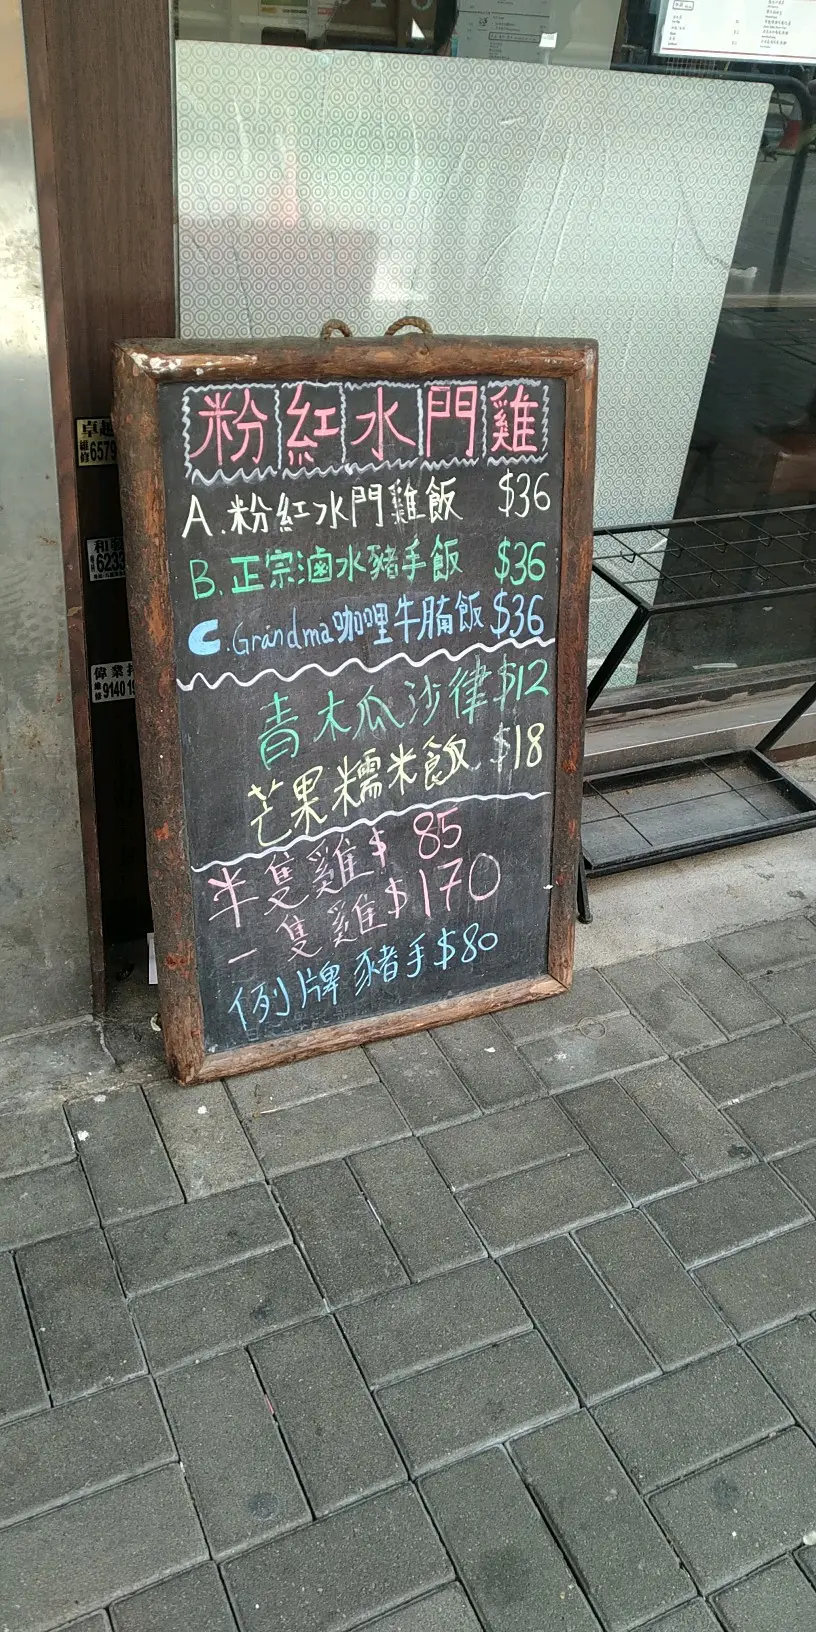 粉紅水門雞
A.粉紅水門雞飯 $36
B.正宗滷水豬手飯 $36
C.Grandma咖哩牛腩飯 $36
青木瓜沙律 $12
芒果糯米飯 $18
半隻雞 $ 85
一隻雞 $170
例牌豬手 $80
卓越
維修 6579
維修 6233
偉業
維修 9140 19